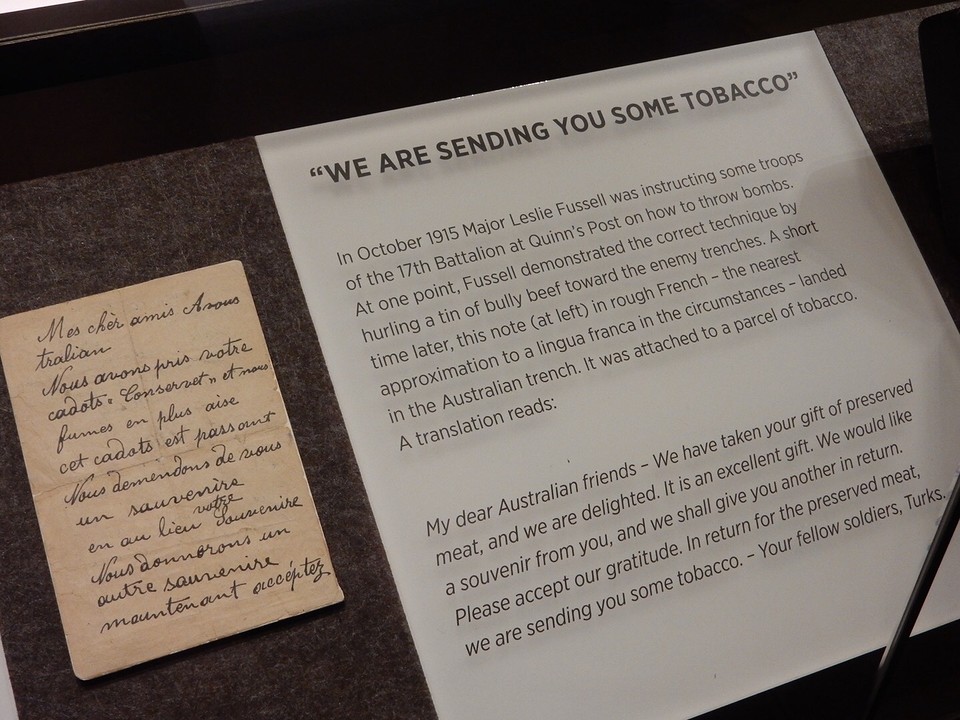 Mes chèr amis Avous
tralian
Nous avons pris votre
cadots "Conservet" et nous
fumes en plus aise
cet cadots est passant
Nous demendons de vous
un sauvenire
votre
en au lieu Souvenire
Nous donnerons un
autre sauvenire
maintenant accéptez
“WE ARE SENDING YOU SOME TOBACCO”
In October 1915 Major Leslie Fussell was instructing some troops
of the 17th Battalion at Quinn’s Post on how to throw bombs.
At one point, Fussell demonstrated the correct technique by
hurling a tin of bully beef toward the enemy trenches. A short
time later, this note (at left) in rough French – the nearest
approximation to a lingua franca in the circumstances – landed
in the Australian trench. It was attached to a parcel of tobacco.
A translation reads:
My dear Australian friends – We have taken your gift of preserved
meat, and we are delighted. It is an excellent gift. We would like
a souvenir from you, and we shall give you another in return.
Please accept our gratitude. In return for the preserved meat,
we are sending you some tobacco. – Your fellow soldiers, Turks.